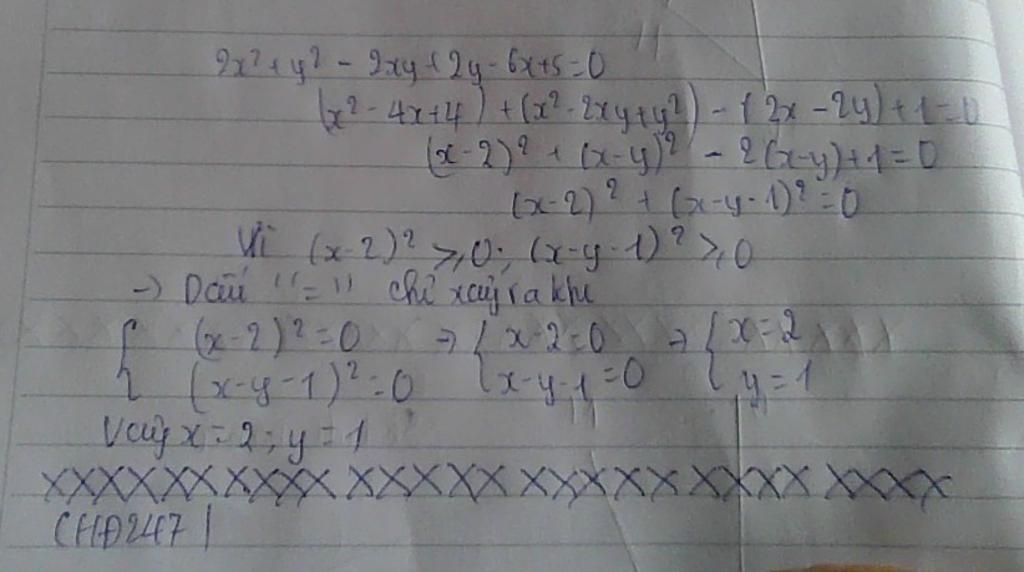 2x² + y² - 2xy + 2y - 6x + 5 = 0
(x² - 4x + 4) + (x² - 2xy + y²) - (2x - 2y) + 1 = 0
(x - 2)² + (x - y)² - 2(x - y) + 1 = 0
(x - 2)² + (x - y - 1)² = 0
Vì (x - 2)² ≥ 0; (x - y - 1)² ≥ 0
→ Dấu "=" chỉ xảy ra khi
{ (x - 2)² = 0 → { x - 2 = 0 → { x = 2
(x - y - 1)² = 0 x - y - 1 = 0 y = 1
Vậy x = 2; y = 1
XXXXXXXXXX XXXXX XXXXXXXXX XXXX
CHĐ247